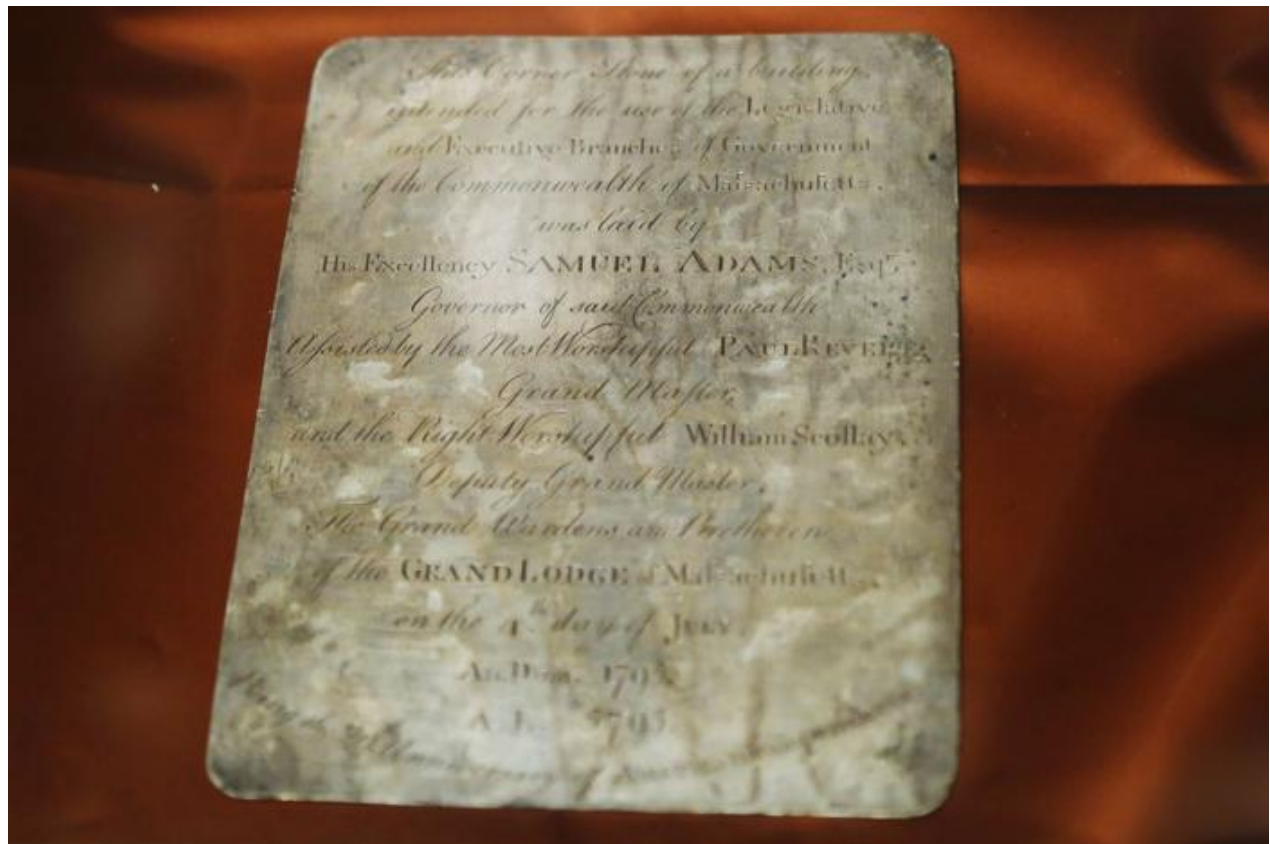 This Corner Stone of a building
intended for the use of the Legislative
and Executive Branches of Government
of the Commonwealth of Maſsachuſetts,
was laid by
His Excellency SAMUEL ADAMS, Esqr.
Governor of said Commonwealth
Aſsisted by the Most Worshipful PAUL REVERE
Grand Maſter,
and the Right Worshipful William Scollay,
Deputy Grand Maſter,
The Grand Wardens and Brethren
of the GRAND LODGE of Maſsachuſetts,
on the 4th day of JULY,
An. Dom. 1795
A. L. 5795
Being the Anniversary of American